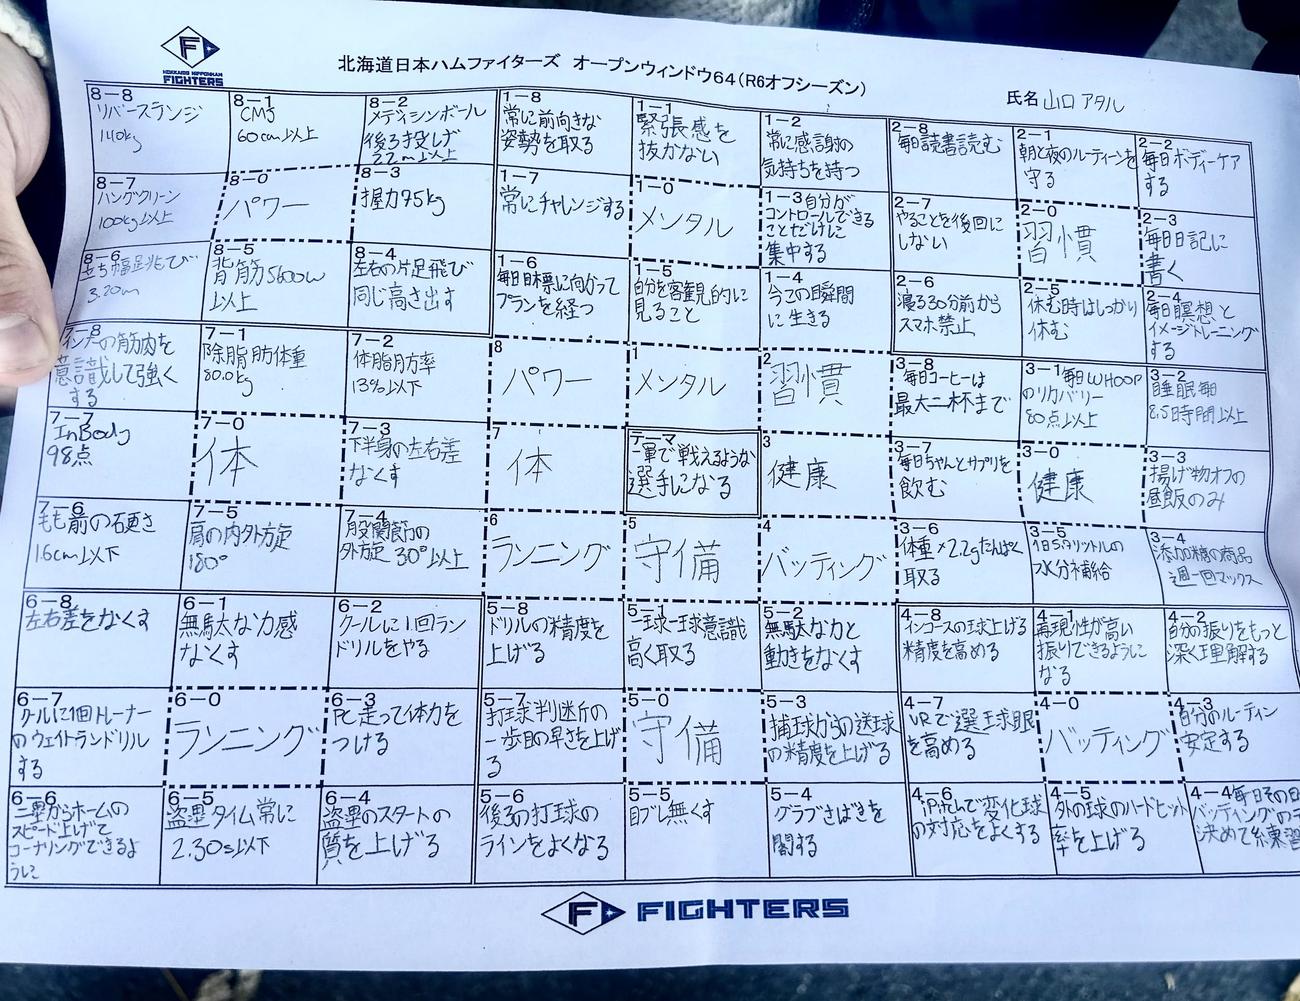 HOKKAIDO NIPPONHAM
FIGHTERS
北海道日本ハムファイターズ オープンウィンドウ64(R6オフシーズン)
氏名 山口 アタル
8-8
リバースランジ
140kg
8-1
CMJ
60cm以上
8-2
メディシンボール
後ろ投げ
22m以上
1-8
常に前向きな
姿勢を取る
1-1
緊張感を
抜かない
1-2
常に感謝の
気持ちを持つ
2-8
毎日読書読む
2-1
朝と夜のルーティンを
守る
2-2
毎日ボディーケア
する
8-7
ハングクリーン
100kg以上
8-0
パワー
8-3
握力75kg
1-7
常にチャレンジする
1-0
メンタル
1-3 自分が
コントロールできる
ことだけに
集中する
2-7
やることを後回に
しない
2-0
習慣
2-3
毎日日記に
書く
8-6
立ち幅足兆び
3.20m
8-5
背筋5600w
以上
8-4
左右の片足飛び
同じ高さ出す
1-6
毎日目標に向かって
プランを経つ
1-5
自分を客観的に
見ること
1-4
今この瞬間
に生きる
2-6
寝る30分前から
スマホ禁止
2-5
休む時はしっかり
休む
2-4
毎日瞑想と
イメージトレーニング
する
7-8
インナーの筋肉を
意識して強く
する
7-1
除脂肪体重
80.0kg
7-2
体脂肪率
13%以下
8
パワー
1
メンタル
2
習慣
3-8
毎日コーヒーは
最大二杯まで
3-1 毎日WHOOP
のリカバリー
80点以上
3-2
睡眠毎日
8.5時間以上
7-7
InBody
98点
7-0
体
7-3
下半身の左右差
なくす
7
体
テーマ
一軍で戦えるような
選手になる
3
健康
3-7
毎日ちゃんとサプリを
飲む
3-0
健康
3-3
揚げ物オフの
昼飯のみ
7-6
もも前の硬さ
16cm以下
7-5
肩の内外方旋
180°
7-4
股関節の
外方旋 30°以上
6
ランニング
5
守備
4
バッティング
3-6
体重×2.2gたんぱく
取る
3-5
1日5.5リットルの
水分補給
3-4
添加糖の商品
週一回マックス
6-8
左右差をなくす
6-1
無駄な力感
なくす
6-2
クールに1回ラン
ドリルをやる
5-8
ドリルの精度を
上げる
5-1
一球一球意識
高く取る
5-2
無駄な力と
動きをなくす
4-8
インコースの球上げる
精度を高める
4-1
再現性が高い
振りできるように
なる
4-2
自分の振りをもっと
深く理解する
6-7
クールに1回トレーナー
のウェイトランドリル
する
6-0
ランニング
6-3
PC走って体力を
つける
5-7
打球判断の
一歩目の早さを上げ
る
5-0
守備
5-3
捕球からの送球
の精度を上げる
4-7
VRで選球眼
を高める
4-0
バッティング
4-3
自分のルーティン
安定する
6-6
二塁からホームの
スピード上げて
コーナリングできるよ
うに
6-5
盗塁タイム常に
2.30s以下
6-4
盗塁のスタートの
質を上げる
5-6
後ろの打球の
ラインをよくなる
5-5
目ブレ無くす
5-4
グラブさばきを
4-6
での変化球
の対応をよくする
4-5
外の球のハードヒット
率を上げる
4-4 毎日その日
バッティングの
決めて練習
FIGHTERS